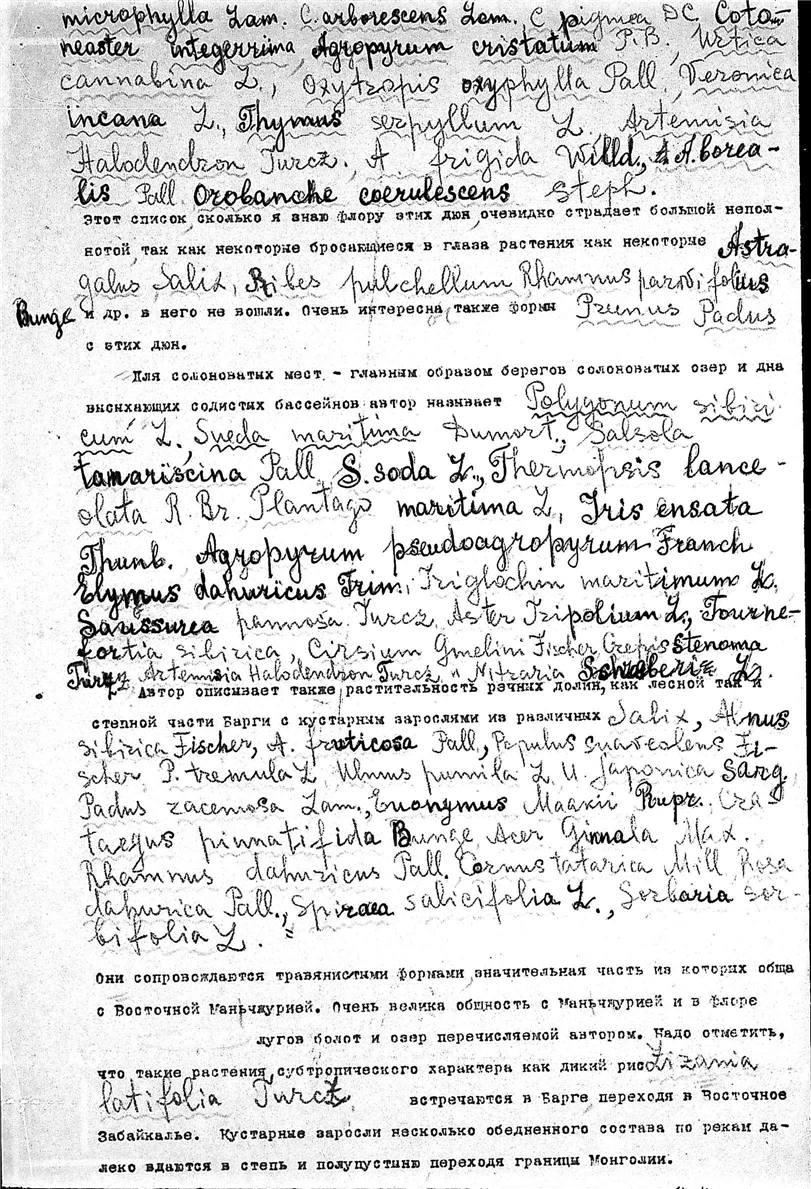 microphylla Lam. C. arborescens Lam. C pigmea DC Coto-
neaster integerrima, Agropyrum cristatum P.B., Urtica
cannabina L., Oxytropis oxyphylla Pall, Veronica
incana L., Thymus serpyllum L., Artemisia
Halodendron Turcz., A. frigida Willd., A. borea-
lis Pall. Orobanche coerulescens Steph.
Этот список сколько я знаю флору этих дюн очевидно страдает большой непол-
нотой так как некоторые бросающиеся в глаза растения как некоторые Astra-
galus, Salix, Ribes pulchellum Rhamnus parvifolius
Bunge и др. в него не вошли. Очень интересна также формы Prunus Padus
с этих дюн.
Для солоноватых мест - главным образом берегов солоноватых озер и дна
высыхающих содистых бассейнов автор называет Polygonum sibiri
cum L., Sueda maritima Dumort., Salsola
tamariscina Pall, S. soda L., Thermopsis lance-
olata R. Br. Plantago maritima L, Iris ensata
Thunb. Agropyrum pseudoagropyrum Franch
Elymus dahuricus Trin., Triglochin maritimum L.
Saussurea pannosa Turcz, Aster Tripolium L., Tourne-
fortia sibirica, Cirsium Gmelini Fischer Crepis Stenoma
Turcz Artemisia Halodendron Turcz и Nitraria Schoberi L.
Автор описывает также растительность речных долин, как лесной так и
степной части Барги с кустарным зарослями из различных Salix, Alnus
sibirica Fischer, A. fruticosa Pall., Populus suaveolens Fi-
scher P. tremula L Ulmus pumila L U. Japonica Sarg.
Padus racemosa Lam., Euonymus Maakii Rupr. Cra-
taegus pinnatifida Bunge Acer Ginnala Max.
Rhamnus dahuricus Pall. Cornus tatarica Mill Rosa
dahurica Pall., Spiraea salicifolia L., Sorbaria sor-
bifolia L.
Они сопровождаются травянистыми формами значительная часть из которых обща
с Восточной Маньчжурией. Очень велика общность с Маньчжурией и в флоре
лугов болот и озер перечисляемой автором. Надо отметить,
что такие растения субтропического характера как дикий рис Zizania
latifolia Turcz встречаются в Барге переходя в Восточное
Забайкалье. Кустарные заросли несколько обедненного состава по рекам да-
леко вдаются в степь и полупустыню переходя границы Монголии.